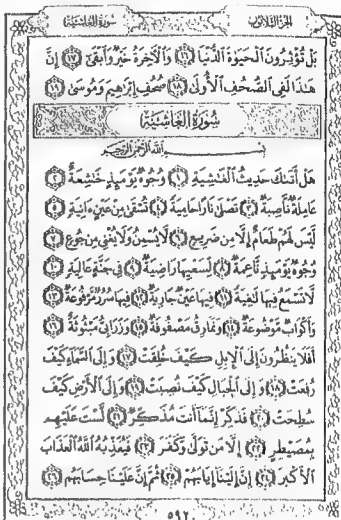 الجزء الثلاثون سورة الغاشية
بَلْ تُؤْثِرُونَ الْحَيَوٰةَ الدُّنْيَا ١٦ وَالْآخِرَةُ خَيْرٌ وَأَبْقَىٰ ١٧ إِنَّ
هَٰذَا لَفِى الصُّحُفِ الْأُولَىٰ ١٨ صُحُفِ إِبْرَٰهِيمَ وَمُوسَىٰ ١٩
سُورَةُ الْغَاشِيَةِ
بِسْمِ اللَّهِ الرَّحْمَٰنِ الرَّحِيمِ
هَلْ أَتَىٰكَ حَدِيثُ الْغَٰشِيَةِ ١ وُجُوهٌ يَوْمَئِذٍ خَٰشِعَةٌ ٢
عَامِلَةٌ نَّاصِبَةٌ ٣ تَصْلَىٰ نَارًا حَامِيَةً ٤ تُسْقَىٰ مِنْ عَيْنٍ ءَانِيَةٍ ٥
لَّيْسَ لَهُمْ طَعَامٌ إِلَّا مِن ضَرِيعٍ ٦ لَّا يُسْمِنُ وَلَا يُغْنِى مِن جُوعٍ ٧
وُجُوهٌ يَوْمَئِذٍ نَّاعِمَةٌ ٨ لِّسَعْيِهَا رَاضِيَةٌ ٩ فِى جَنَّةٍ عَالِيَةٍ ١٠
لَّا تَسْمَعُ فِيهَا لَٰغِيَةً ١١ فِيهَا عَيْنٌ جَارِيَةٌ ١٢ فِيهَا سُرُرٌ مَّرْفُوعَةٌ ١٣
وَأَكْوَابٌ مَّوْضُوعَةٌ ١٤ وَنَمَارِقُ مَصْفُوفَةٌ ١٥ وَزَرَابِىُّ مَبْثُوثَةٌ ١٦
أَفَلَا يَنظُرُونَ إِلَى الْإِبِلِ كَيْفَ خُلِقَتْ ١٧ وَإِلَى السَّمَاءِ كَيْفَ
رُفِعَتْ ١٨ وَإِلَى الْجِبَالِ كَيْفَ نُصِبَتْ ١٩ وَإِلَى الْأَرْضِ كَيْفَ
سُطِحَتْ ٢٠ فَذَكِّرْ إِنَّمَا أَنتَ مُذَكِّرٌ ٢١ لَّسْتَ عَلَيْهِم
بِمُصَيْطِرٍ ٢٢ إِلَّا مَن تَوَلَّىٰ وَكَفَرَ ٢٣ فَيُعَذِّبُهُ اللَّهُ الْعَذَابَ
الْأَكْبَرَ ٢٤ إِنَّ إِلَيْنَا إِيَابَهُمْ ٢٥ ثُمَّ إِنَّ عَلَيْنَا حِسَابَهُم ٢٦
٥٩٢